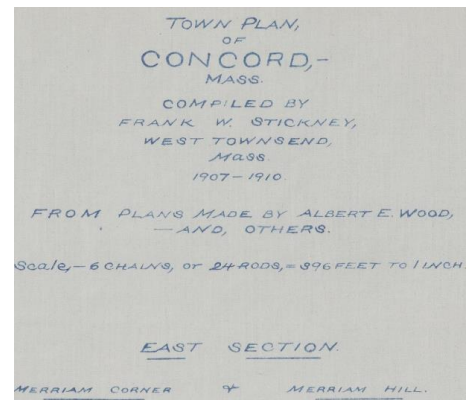 TOWN PLAN,
OF
CONCORD,-
MASS.
COMPILED BY
FRANK W. STICKNEY,
WEST TOWNSEND,
Mass.
1907-1910.
FROM PLANS MADE BY ALBERT E. WOOD,
—AND, OTHERS.
Scale,-6 CHAINS, or 24 RODS,=396 FEET TO 1 INCH.
EAST SECTION.
MERRIAM CORNER & MERRIAM HILL.